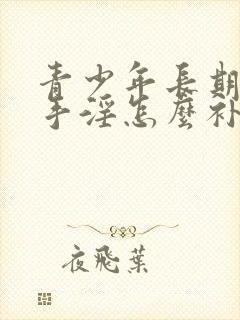 青少年長期
手淫怎麼补
夜飛葉